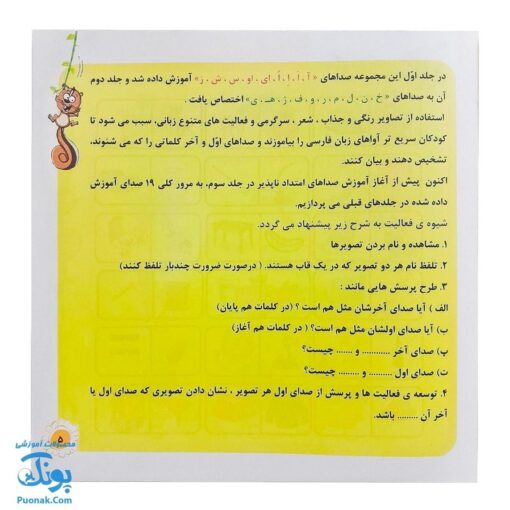 در جلد اوّل این مجموعه صداهای « آ ، اَ ، اِ ، اُ ، ای ، او ، س ، ش ، ز » آموزش داده شد و جلد دوم
آن به صداهای « خ ، ن ، ل ، م ، ر ، و ، ف ، ژ ، هـ ، ی » اختصاص یافت .
استفاده از تصاویر رنگی و جذاب ، شعر ، سرگرمی و فعالیت های متنوع زبانی، سبب می شود تا
کودکان سریع تر آواهای زبان فارسی را بیاموزند و صداهای اوّل و آخر کلماتی را که می شنوند،
تشخیص دهند و بیان کنند.
اکنون پیش از آغاز آموزش صداهای امتداد ناپذیر در جلد سوم، به مرور کلی ۱۹ صدای آموزش
داده شده در جلدهای قبلی می پردازیم.
شیوه ی فعالیت به شرح زیر پیشنهاد می گردد.
۱. مشاهده و نام بردن تصویرها
۲. تلفظ نام هر دو تصویر که در یک قاب هستند. ( درصورت ضرورت چندبار تلفظ کنند)
۳. طرح پرسش هایی مانند :
الف ) آیا صدای آخرشان مثل هم است ؟ (در کلمات هم پایان)
ب) آیا صدای اولشان مثل هم است؟ ( در کلمات هم آغاز)
پ) صدای آخر .......... و ....... چیست؟
ت) صدای اول .......... و ......... چیست؟
۴. توسعه ی فعالیت ها و پرسش از صدای اول هر تصویر ، نشان دادن تصویری که صدای اول یا
آخر آن ......... باشد.
۵
محصولات آموزشی
پونک
Puonak.Com